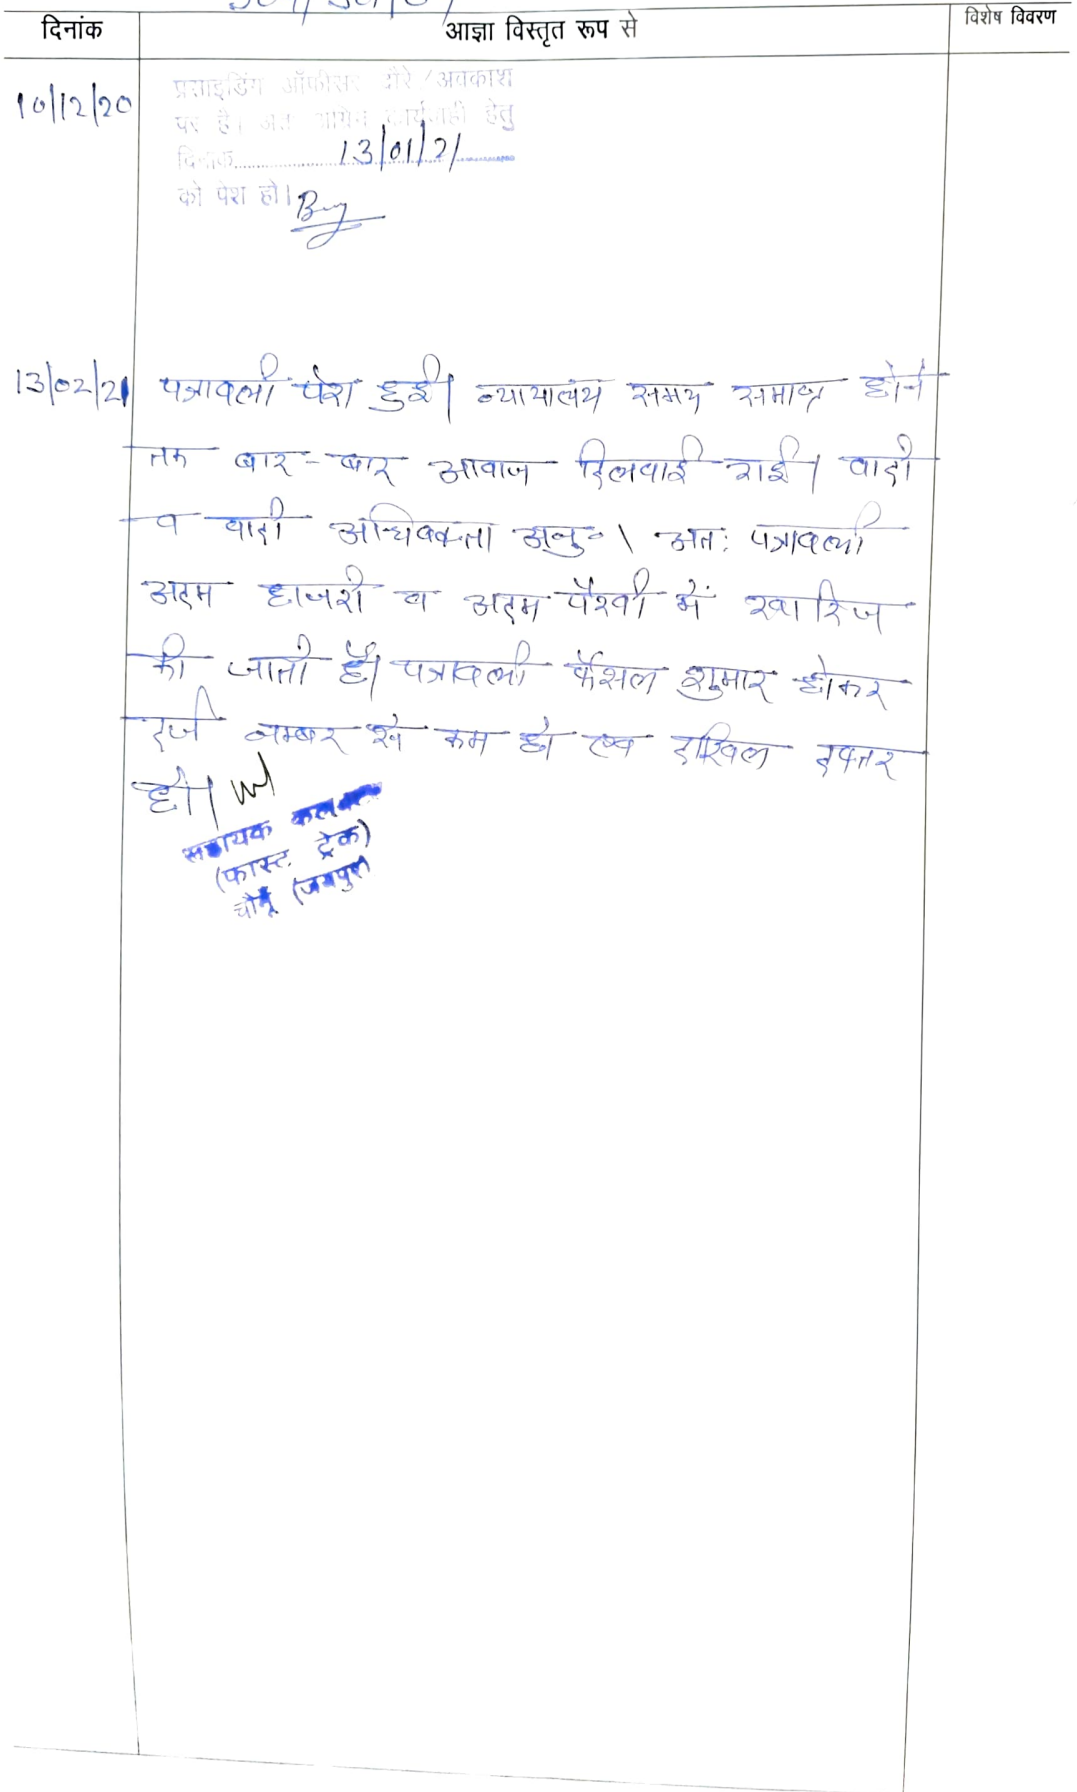 दिनांक आज्ञा विस्तृत रूप से विशेष विवरण
10/12/20 प्रसाइडिंग ऑफीसर दौरे/अवकाश
पर है। अतः अग्रिम कार्यवाही हेतु
दिनांक 13/01/21
को पेश हो।
13/02/21 पत्रावली पेश हुई। न्यायालय समय समाप्त होने
तक बार-बार आवाज दिलवाई गई। वादी
व वादी अधिवक्ता अनु०। अतः पत्रावली
अदम हाजरी व अदम पैरवी में खारिज
की जाती है। पत्रावली फैसल शुमार होकर
दर्ज नम्बर से कम हो एवं दाखिल दफ्तर
हो।
सहायक कलक्टर
(फास्ट ट्रेक)
चौमू (जयपुर)